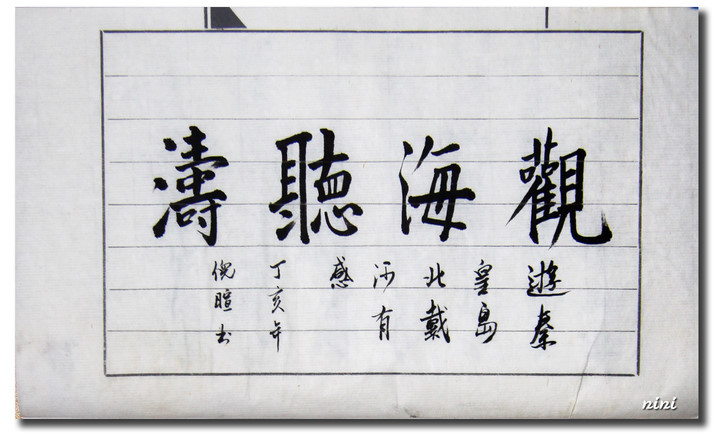 觀海聽濤
遊秦
皇島
北戴
河有
感
丁亥年
倪暄书
nini